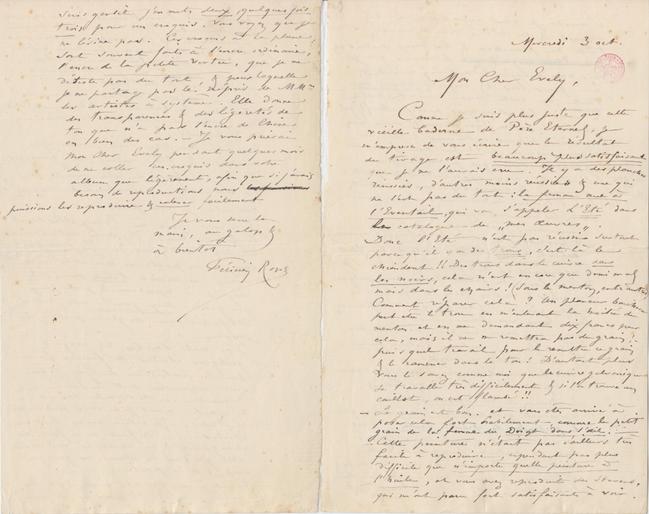 Mercredi 3 oct.
Mon Cher Evely,
Comme je suis plus juste que cette
vieille baderne de Père Eternel, je
m'empresse de vous écrire que le résultat
du tirage est beaucoup plus satisfaisant
que je ne l'aurais cru. Il y a des planches
réussies, d'autres moins réussies & une qui
ne l'est pas du tout : la femme nue à
l'Eventail, qui va s'appeler L'Eté dans
le catalogue de « mes Œuvres ».
Donc l'Eté n'est pas réussie surtout
parce qu'il y a des trous, c'est là le
chiendent !! Des trous dans le cuivre dans
les noirs, cela n'est encore que demi mal
mais dans les chairs ! (sous le menton,
Comment réparer cela ? Un planeur
le trou en
menton et en me demandant dix francs pour
cela, mais il ne remettra pas de grain !
puis quel travail pour le remettre ce grain
& le ramener dans le ton ! D'autant plus
vous le savez comme moi que le cuivre galvanique
se travaille très difficilement & si l'on trouve un
caillot, on est flambé !!
– Le grain est bon et vous êtes arrivé à
poser cela fort habilement, comme le petit
grain de la femme du Doigt dans l'œil.
Cette peinture n'était pas d'ailleurs très
facile à reproduire, cependant pas plus
difficile que n'importe quelle peinture à
l'huile, et vous avez reproduit des
qui m'ont paru fort satisfaisants à voir.
suis gentil j'en mets deux, quelques fois
trois pour un croquis. Vous voyez que je
ne lésine pas. Les croquis à la plume
sont souvent faits à l'encre ordinaire,
l'encre de la petite vertu, que je ne
déteste pas du tout, & pour laquelle
je ne partage pas le mépris de MM.
les artistes à système. Elle donne
des transparences & des légèretés de
ton que n'a pas l'encre de Chine
en bien des cas. Je vous prierai
Mon Cher Evely pendant quelques mois
de ne coller les croquis dans votre
album que légèrement, afin que si j'avais
besoin de reproductions nous
puissions les reproduire & enlever facilement
Je vous serre la
main, au galop &
à bientôt
Félicien Rops